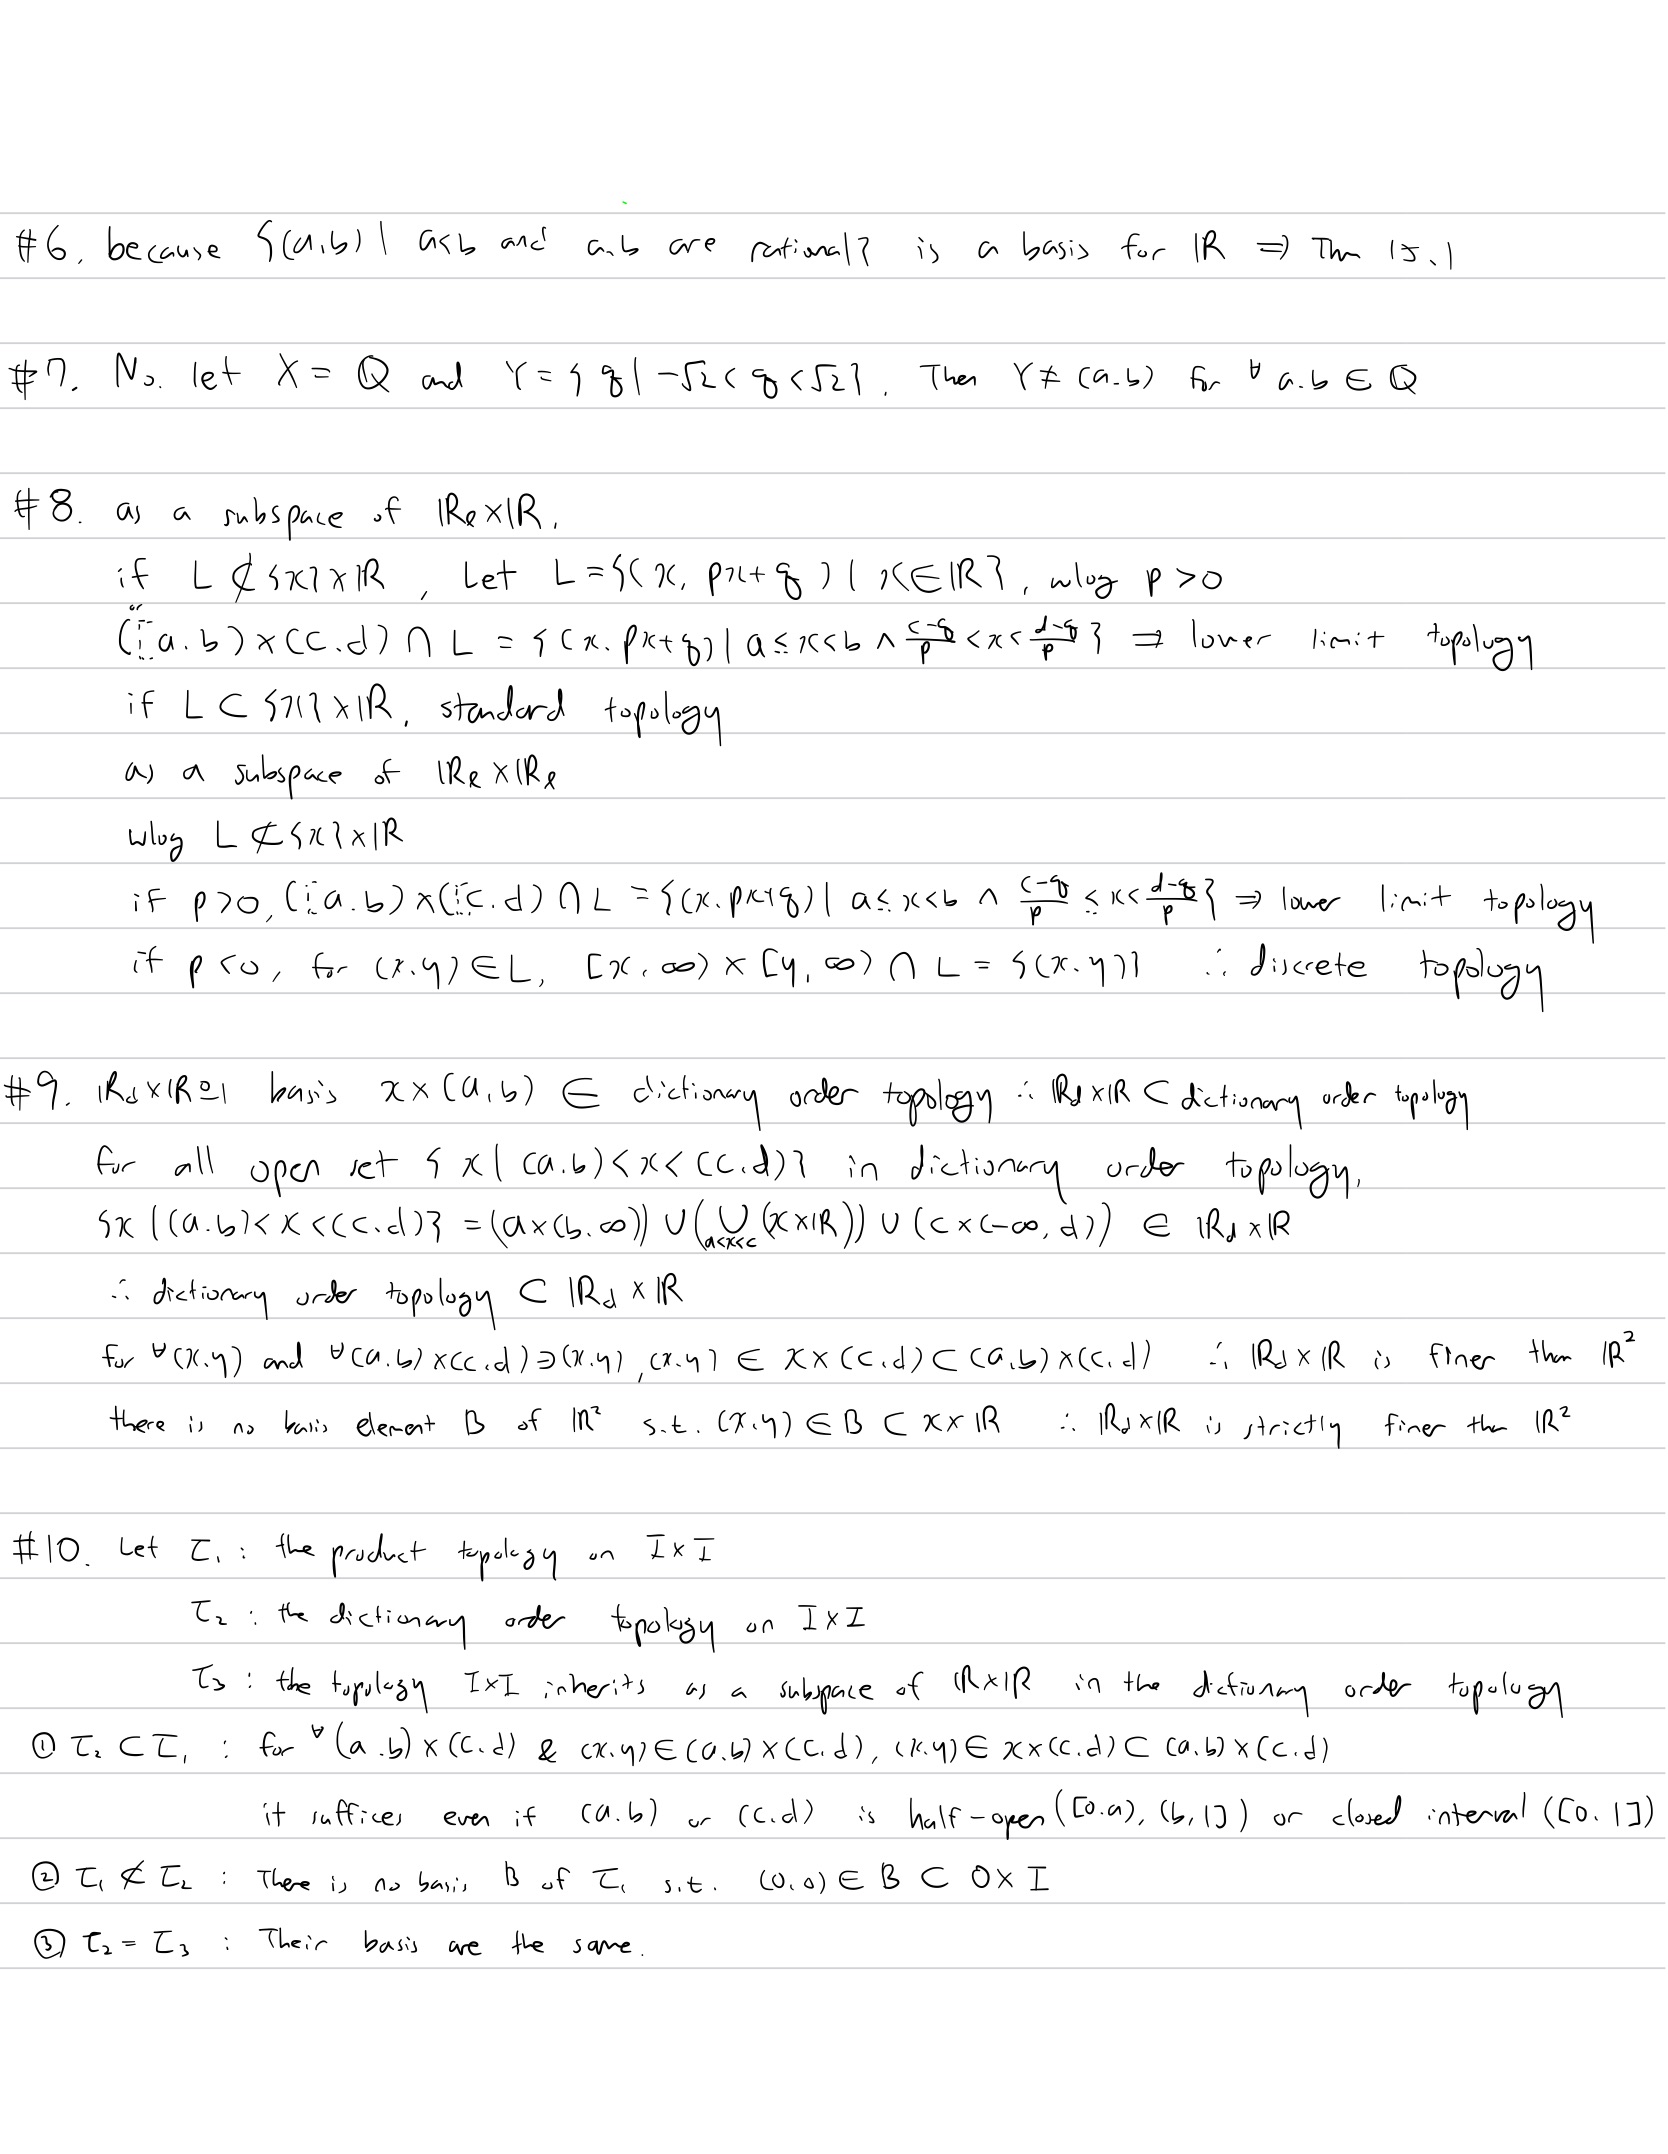 #6. because {(a,b) | a<b and a,b are rational} is a basis for ℝ ⇒ Thm 15.1
#7. No. let X = ℚ and Y = { q | -√2 < q < √2 }. Then Y ≠ (a.b) for ∀ a.b ∈ ℚ
#8. as a subspace of ℝℓ×ℝ,
if L ⊄ {x}×ℝ, Let L = {(x, px+q) | x∈ℝ}, wlog p>0
or
([a.b)×(c.d) ∩ L = {(x. px+q) | a≤x<b ∧ (c-q)/p < x < (d-q)/p } ⇒ lower limit topology
if L ⊂ {x}×ℝ, standard topology
as a subspace of ℝℓ×ℝℓ
wlog L ⊄ {x}×ℝ
if p>0, ([a.b)×([c.d) ∩ L = {(x.px+q) | a≤x<b ∧ (c-q)/p ≤ x < (d-q)/p} ⇒ lower limit topology
if p<0, for (x.y)∈L, [x,∞)×[y,∞) ∩ L = {(x.y)} ∴ discrete topology
#9. ℝd×ℝ의 basis x×(a,b) ∈ dictionary order topology ∴ ℝd×ℝ ⊂ dictionary order topology
for all open set { x | (a.b)<x<(c.d)} in dictionary order topology,
{x | (a.b)<x<(c.d)} = (a×(b.∞)) ∪ (⋃a<x<c (x×ℝ)) ∪ (c×(-∞,d)) ∈ ℝd×ℝ
∴ dictionary order topology ⊂ ℝd×ℝ
for ∀(x.y) and ∀(a.b)×(c.d)∋(x.y), (x.y) ∈ x×(c.d)⊂(a.b)×(c.d) ∴ ℝd×ℝ is finer than ℝ²
there is no basis element B of ℝ² s.t. (x.y)∈B⊂x×ℝ ∴ ℝd×ℝ is strictly finer than ℝ²
#10. Let τ₁ : the product topology on I×I
τ₂ : the dictionary order topology on I×I
τ₃ : the topology I×I inherits as a subspace of ℝ×ℝ in the dictionary order topology
① τ₂ ⊂ τ₁ : for ∀(a.b)×(c.d) & (x.y)∈(a.b)×(c.d), (x.y)∈ x×(c.d)⊂(a.b)×(c.d)
it suffices even if (a.b) or (c.d) is half-open([0.a), (b,1]) or closed interval ([0.1])
② τ₁ ⊄ τ₂ : There is no basis B of τ₁ s.t. (0.0)∈B⊂0×I
③ τ₂ = τ₃ : Their basis are the same.